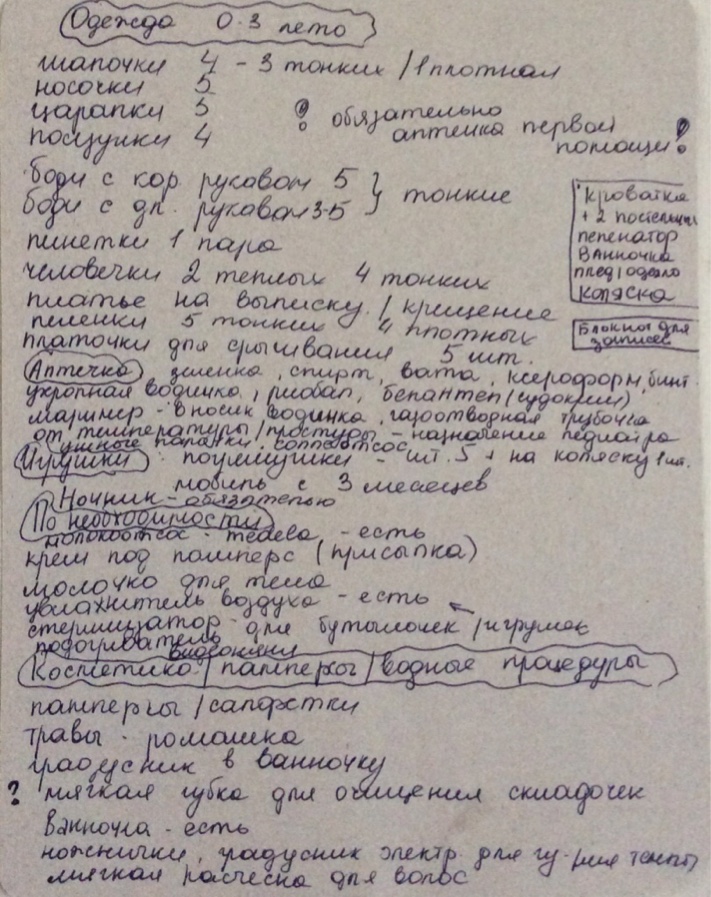 Одежда 0-3 лето
шапочки 4 - 3 тонких / 1 плотная
носочки 5
царапки 5
ползунки 4
! обязательно
аптечка первой
помощи!
боди с кор. рукавом 5 } тонкие
боди с дл. рукавом 3-5
пинетки 1 пара
человечки 2 теплых 4 тонких
платье на выписку / крещение
пеленки 5 тонких 4 плотных
платочки для срыгивания 5 шт.
Кроватка
+ 2 постельных
пеленатор
Ванночка
плед/одеяло
коляска
Блокнот для
записей
Аптечка зеленка, спирт, вата, ксероформ, бинт
укропная водичка, рисобал, бепантен (судокрем)
маример - в носик водичка, газоотводная трубочка
от температуры / простуды - назначение педиатра
ушные палочки, соплеотсос
Игрушки погремушки - шт. 5 + на коляску 1 шт.
мобиль с 3 месяцев
Ночник - обязательно
По необходимости
молокоотсос - есть
крем под памперс (присыпка)
молочко для тела
увлажнитель воздуха - есть
стерилизатор - для бутылочек / игрушек
подогреватель
видеоняня
Косметика / памперсы / водные процедуры
памперсы / салфетки
травы - ромашка
градусник в ванночку
? мягкая губка для очищения складочек
Ванночка - есть
ножнички, градусник электр. для
мягкая расческа для волос